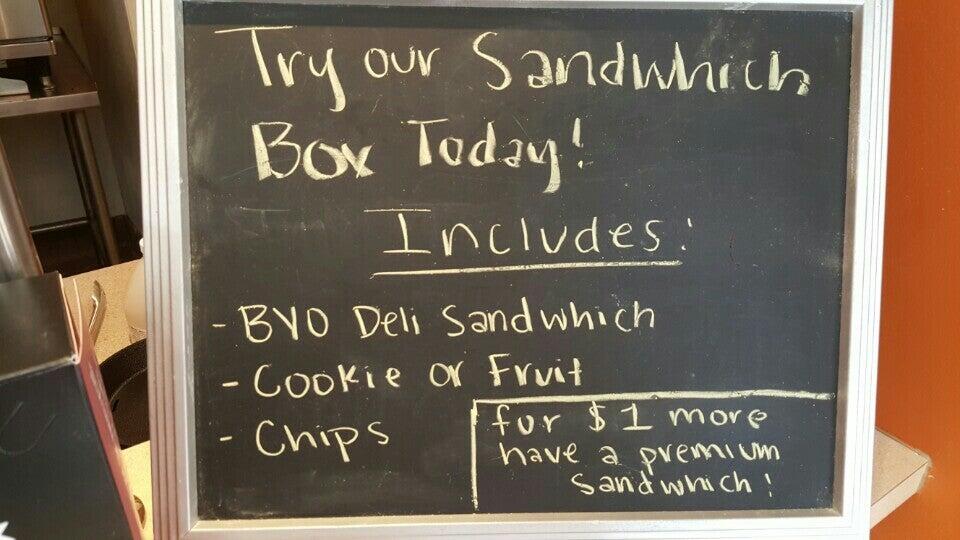 Try our Sandwhich
Box Today!
Includes:
- BYO Deli Sandwhich
- Cookie or Fruit
- Chips
for $1 more
have a premium
sandwhich!